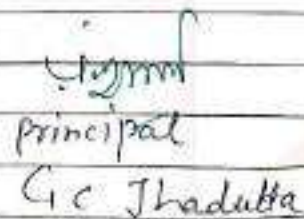 principal
GC Jhadutta